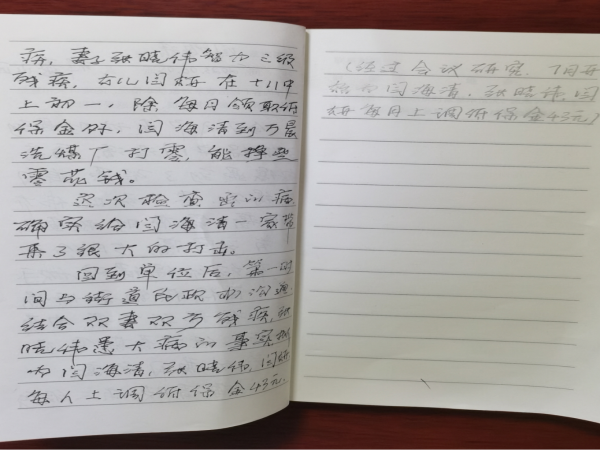 病，妻子张晓伟智力三级
残疾，女儿闫妍在十八中
上初一，除每月领取低
保金外，闫海清到万晨
洗煤厂打零，能挣些
零花钱。
这次检查出的病
确实给闫海清一家带
来了很大的打击。
回到单位后，第一时
间与街道民政办沟通，
结合双妻双方残疾，张
晓伟患大病的事实，拟
为闫海清，张晓伟，闫妍
每人上调低保金43元。
（经过会议研究，7月开
始为闫海清，张晓伟，闫
妍每月上调低保金43元）